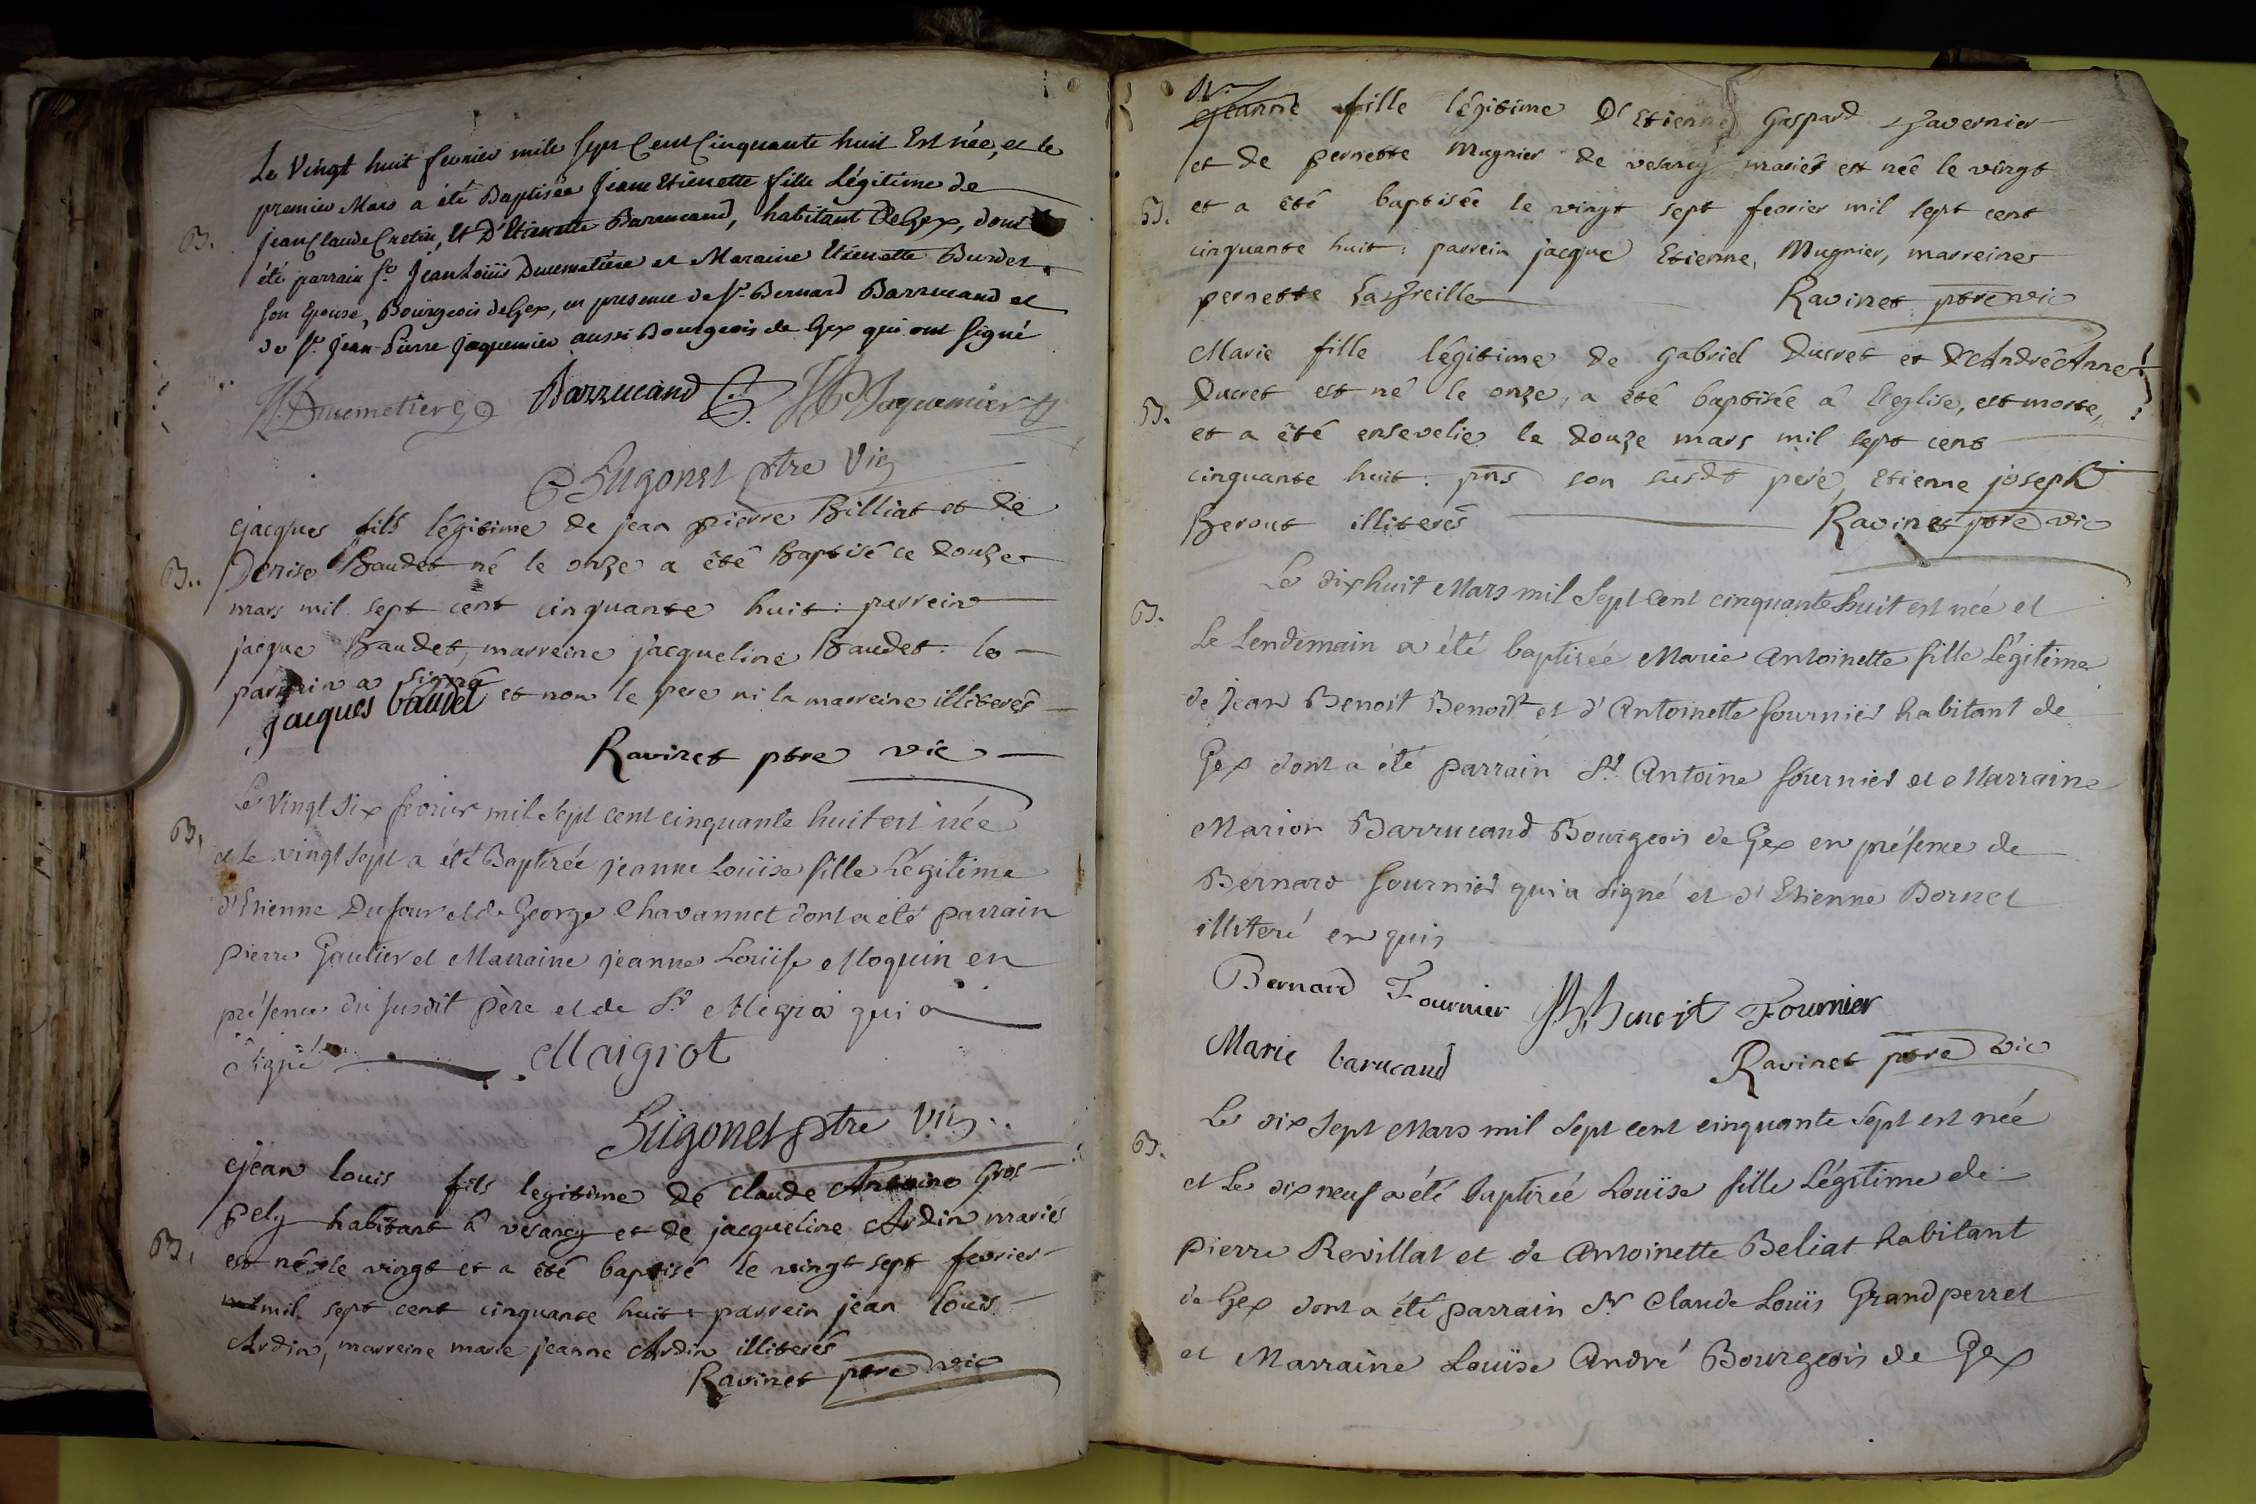 Le Vingt huit fevrier mile sept Cent Cinquante huit Est née, et le
premier Mars a été Baptisée Jeane Etienette fille Légitime de
B. jean Claude Cretin, Et D'Etienette Barrucand, habitant De Gex, dont
été parrain Sr. Jean Loüis Ducmetiere et Maraine Etienette Burdet
son Epouse, Bourgeois de Gex, en presence de Sr. Bernard Barrucand et
de Sr. Jean-Pierre Jaquemier aussi Bourgeois de Gex qui ont signé
Ducmetiere Barrucand Jaquemier
Sugonet ptre Vic
jacques fils légitime de jean pierre Billiat et de
B.. Denise Baudet né le onze a été Baptisé ce douze
mars mil sept cent cinquante huit: parrein
jacque Baudet, marreine jacqueline Baudet. le
parrein a signé et non le pere ni la marreine illiterés
jacques baudet
Ravinet ptre vic
Le Vingt six fevrier mil sept cent cinquante huit est née
B. et le vingt sept a été Baptisée jeanne Louïse fille Légitime
d'Etienne Dufour et de George Chavannet dont a été parrain
pierre Gautier et Marraine jeanne Louïse Moquin en
présence du susdit père et de Sr Mégroz qui a
signé Maigrot
Sugonet ptre Vic..
jean louis fils legitime de claude Antoine Gros
pely habitant à vesancy et de jacqueline Ardin mariés
B. est né le vingt et a été baptisé le vingt sept fevrier
mil sept cent cinquante huit: parrein jean louis
Ardin, marreine marie jeanne Ardin illiterés
Ravinet ptre vic
Jeanne fille légitime D'Etienne Gaspard Tavernier
et de pernette Mugnier de vesancy mariés est née le vingt
B. et a été baptisée le vingt sept fevrier mil sept cent
cinquante huit: parrein jacque Etienne Mugnier, marreine
pernette
Ravinet ptre vic
Marie fille légitime de gabriel Ducret et D'Andrée Anne
B. Ducret est né le onze, a été baptisée à l'eglise, est morte,
et a été ensevelie le douze mars mil sept cent
cinquante huit. pns son susdt pere, Etienne joseph
Berout illiterés Ravinet ptre vic
Le dix huit Mars mil sept Cent cinquante huit est née et
B. Le Lendemain a été baptisée Marie Antoinette fille Légitime
de jean Benoit Benoit et d'Antoinette fournier habitant de
Gex dont a été parrain Sr. Antoine fournier et Marraine
Marion Barrucand Bourgeois de Gex en présence de
Bernard fournier qui a signé et d'Etienne Bornet
illiteré enquis
Bernard Fournier Benoit Fournier
Marie barucand Ravinet ptre vic
Le dix sept Mars mil sept cent cinquante sept est née
B. et Le dix neuf a été baptisée Louïse fille Légitime de
pierre Revillat et de Antoinette Beliat habitant
de Gex dont a été parrain Sr Claude Louïs Grandperret
et Marraine Louïse André Bourgeois de Gex